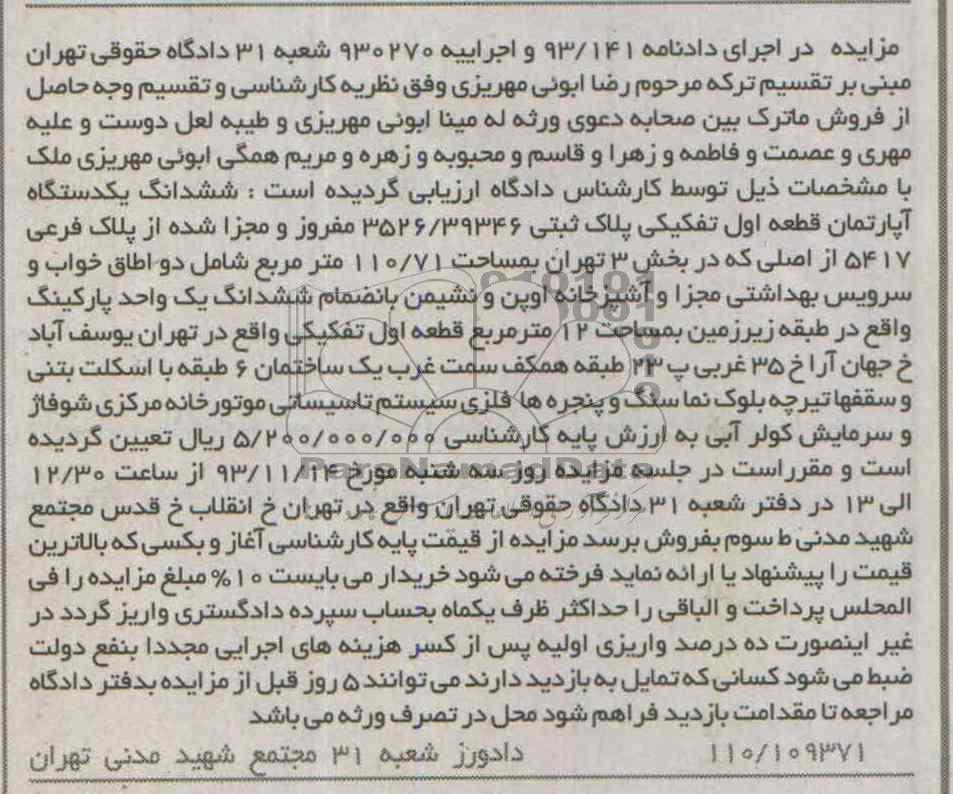 مزایده در اجرای دادنامه ۹۳/۱۴۱ و اجراییه ۹۳۰۲۷۰ شعبه ۳۱ دادگاه حقوقی تهران
مبنی بر تقسیم ترکه مرحوم رضا ابوئی مهریزی وفق نظریه کارشناسی و تقسیم وجه حاصل
از فروش ماترک بین صحابه دعوی ورثه له مینا ابوئی مهریزی و طیبه لعل دوست و علیه
مهری و عصمت و فاطمه و زهرا و قاسم و محبوبه و زهره و مریم همگی ابوئی مهریزی ملک
با مشخصات ذیل توسط کارشناس دادگاه ارزیابی گردیده است : ششدانگ یکدستگاه
آپارتمان قطعه اول تفکیکی پلاک ثبتی ۳۵۲۶/۳۹۳۴۶ مفروز و مجزا شده از پلاک فرعی
۵۴۱۷ از اصلی که در بخش ۳ تهران بمساحت ۱۱۰/۷۱ متر مربع شامل دو اطاق خواب و
سرویس بهداشتی مجزا و آشپزخانه اوپن و نشیمن بانضمام ششدانگ یک واحد پارکینگ
واقع در طبقه زیرزمین بمساحت ۱۲ مترمربع قطعه اول تفکیکی واقع در تهران یوسف آباد
خ جهان آرا خ ۳۵ غربی پ ۲۳ طبقه همکف سمت غرب یک ساختمان ۶ طبقه با اسکلت بتنی
و سقفها تیرچه بلوک نما سنگ و پنجره ها فلزی سیستم تاسیساتی موتورخانه مرکزی شوفاژ
و سرمایش کولر آبی به ارزش پایه کارشناسی ۵/۲۰۰/۰۰۰/۰۰۰ ریال تعیین گردیده
است و مقرر است در جلسه مزایده روز سه شنبه مورخ ۹۳/۱۱/۱۴ از ساعت ۱۲/۳۰
الی ۱۳ در دفتر شعبه ۳۱ دادگاه حقوقی تهران واقع در تهران خ انقلاب خ قدس مجتمع
شهید مدنی ط سوم بفروش برسد مزایده از قیمت پایه کارشناسی آغاز و بکسی که بالاترین
قیمت را پیشنهاد یا ارائه نماید فرخته می شود خریدار می بایست ۱۰% مبلغ مزایده را فی
المحلس پرداخت و الباقی را حداکثر ظرف یکماه بحساب سپرده دادگستری واریز گردد در
غیر اینصورت ده درصد واریزی اولیه پس از کسر هزینه های اجرایی مجددا بنفع دولت
ضبط می شود کسانی که تمایل به بازدید دارند می توانند ۵ روز قبل از مزایده بدفتر دادگاه
مراجعه تا مقدامت بازدید فراهم شود محل در تصرف ورثه می باشد
۱۱۰/۱۰۹۳۷۱ دادورز شعبه ۳۱ مجتمع شهید مدنی تهران
ParsNamadData